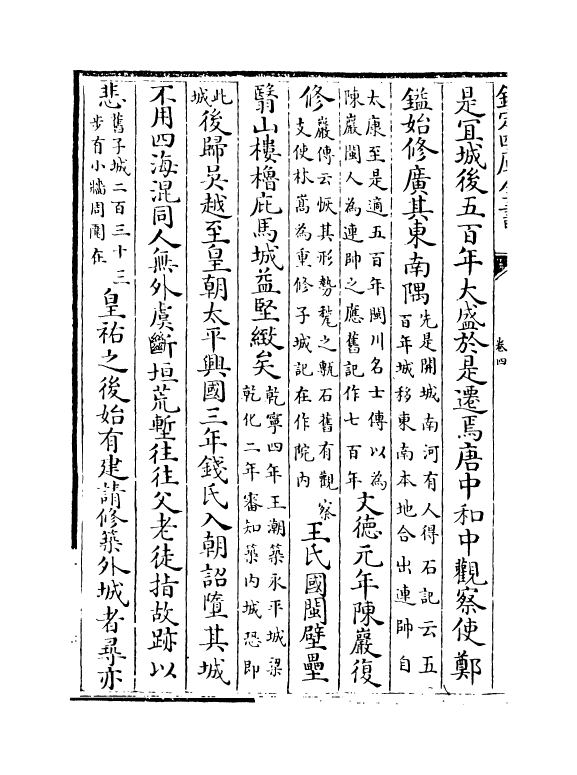 欽定四庫全書
卷四
是宜城後五百年大盛於是遷焉唐中和中觀察使鄭
鎰始修廣其東南隅
先是開城南河有人得石記云五
百年城移東南本地合出連帥自
太康至是適五百年閩川名士傳以為
陳巖閩人為連帥之應舊記作七百年
文德元年陳巖復
修
巖傳云恢其形勢甃之甎石舊有觀察
支使林嵩為重修子城記在作院内
王氏國閩壁壘
翳山樓櫓庇馬城益堅緻矣
乾寧四年王潮築永平城梁
乾化二年審知築内城恐即
此
城
後歸吳越至皇朝太平興國三年錢氏入朝詔墮其城
不用四海混同人無外虞斷垣荒塹往往父老徒指故跡以
悲
舊子城二百三十三
步有小牆周圍在
皇祐之後始有建請修築外城者尋亦